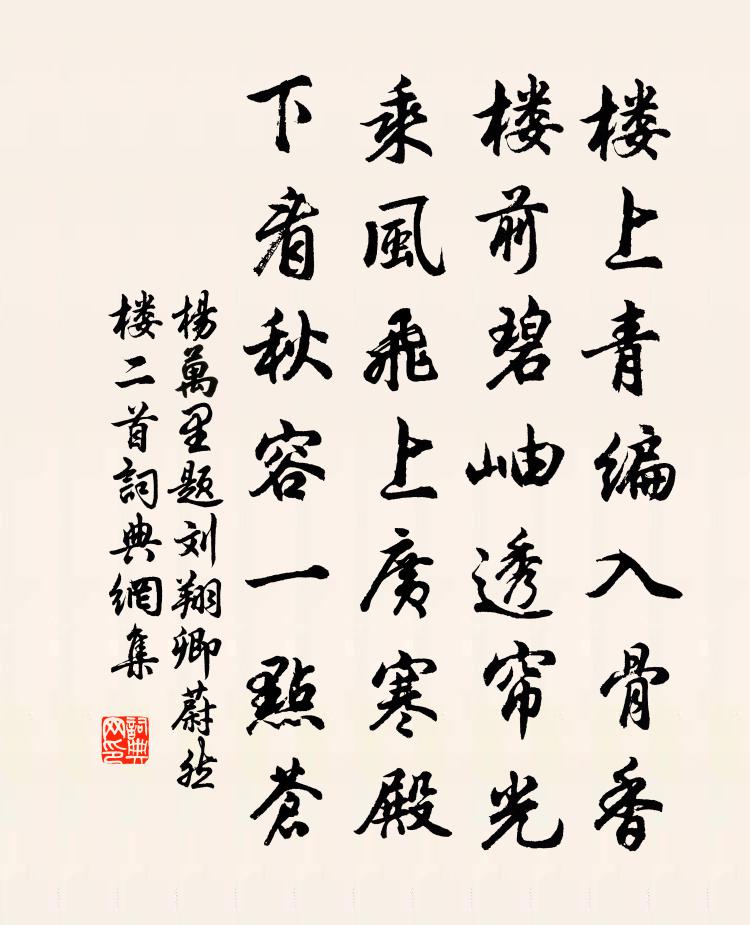 楼上青编入骨香
楼前碧岫透帘光
乘風飛上廣寒殿
下看秋容一點蒼
楊萬里题刘翔卿蔚然
楼二首詞典網集
詞典
网印